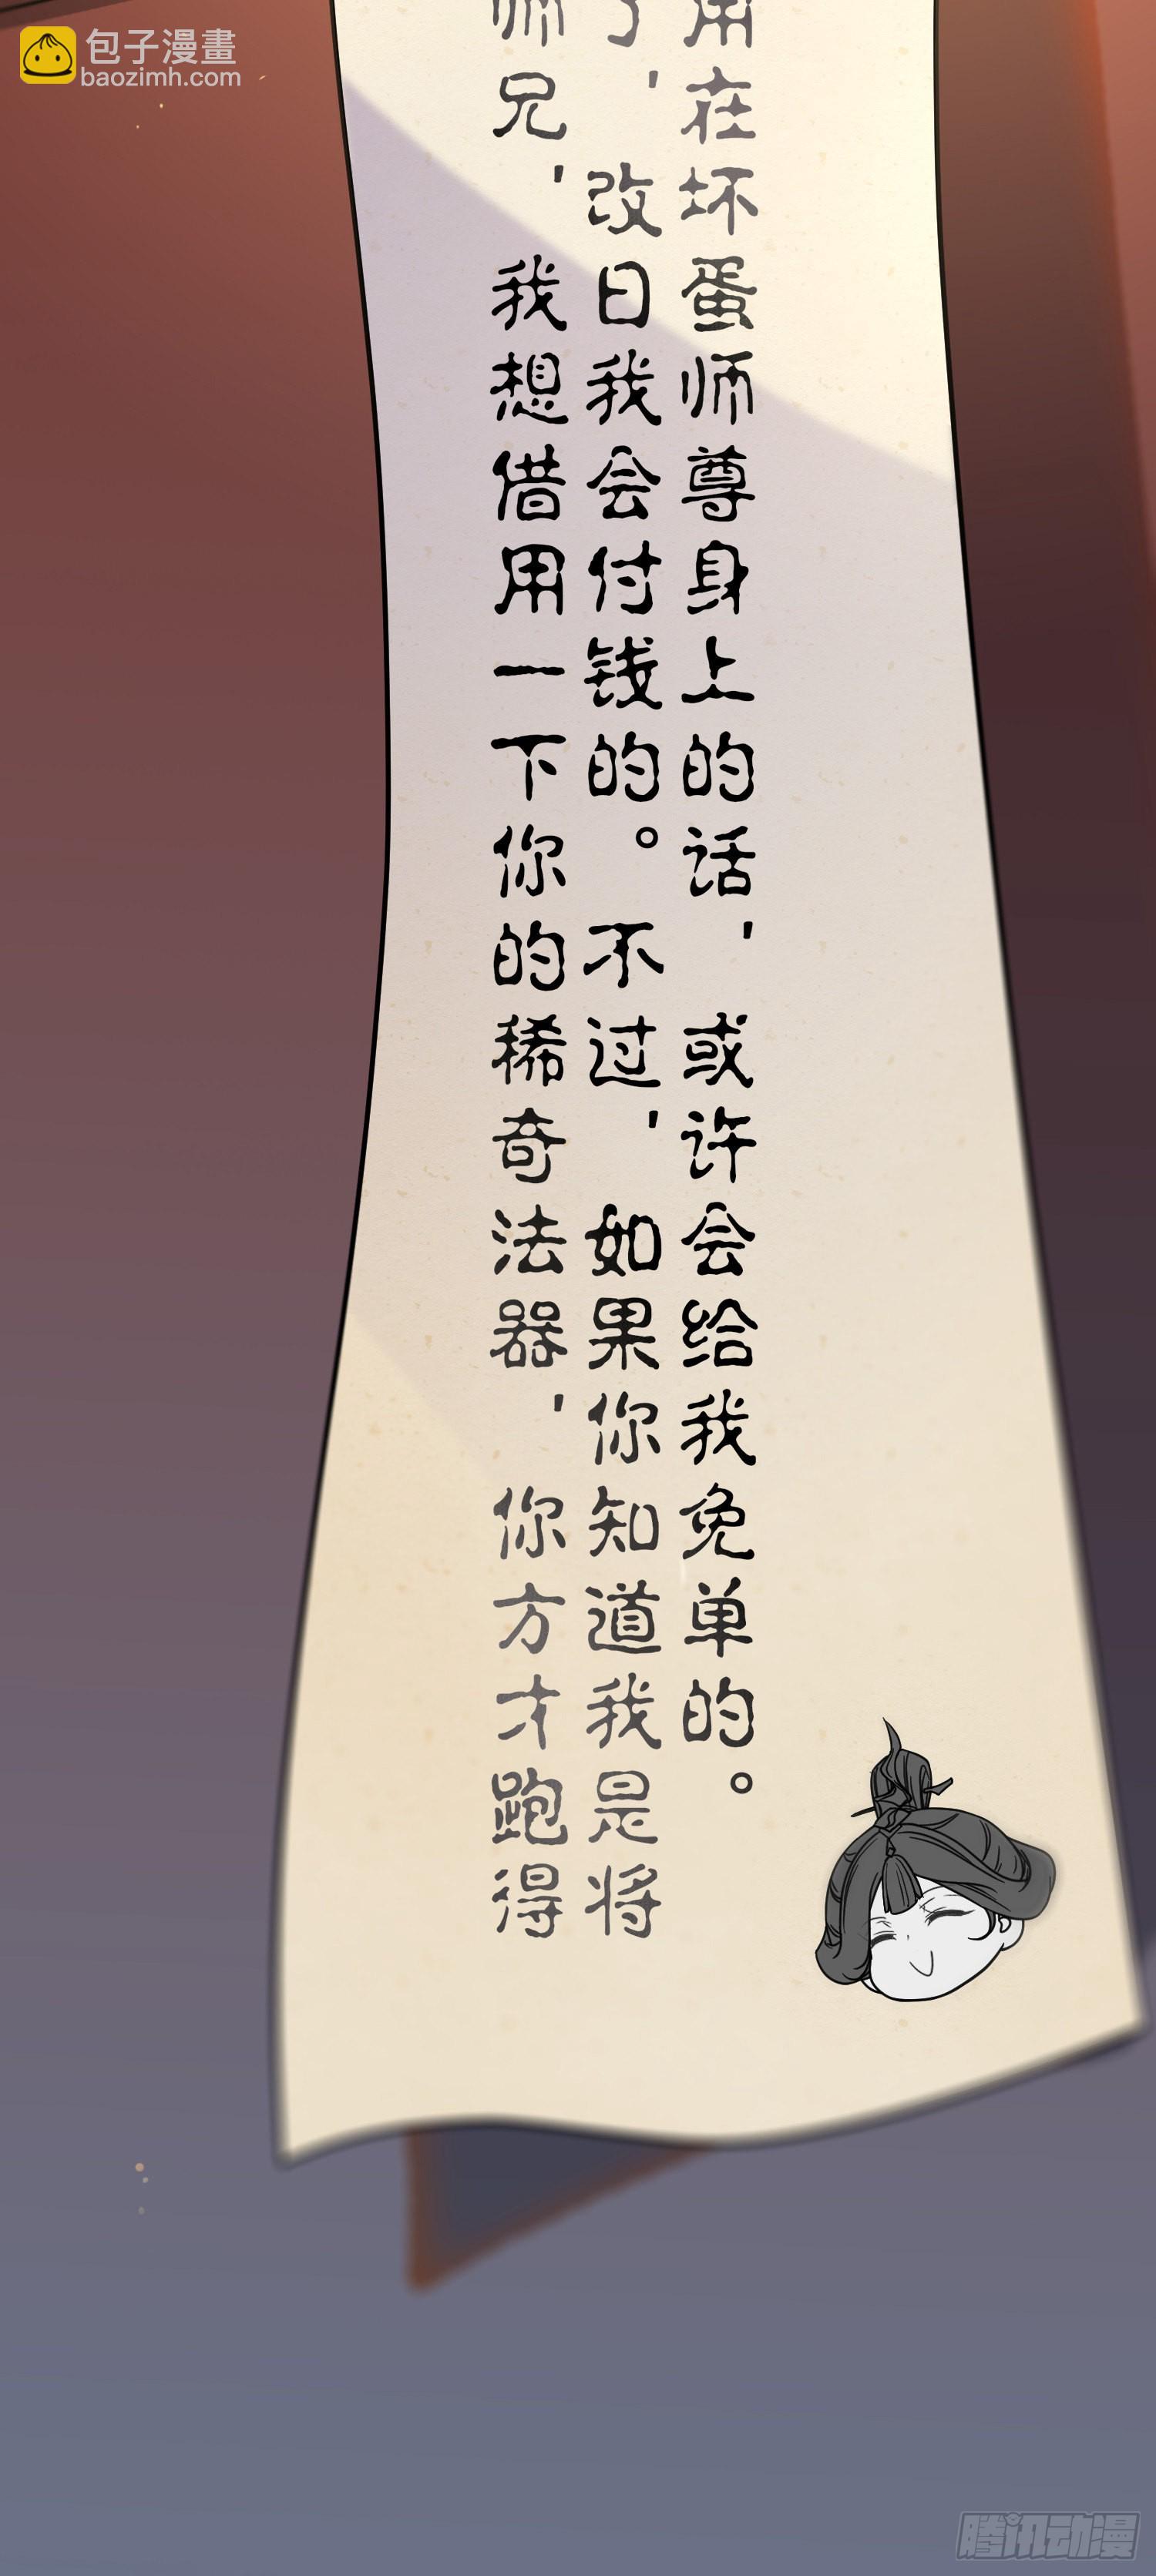 包子漫畫
baozimh.com
师兄，我想借用一下你的稀奇法器，你方才跑得
了，改日我会付钱的。不过，如果你知道我是将
用在坏蛋师尊身上的话，或许会给我免单的。
腾讯动漫